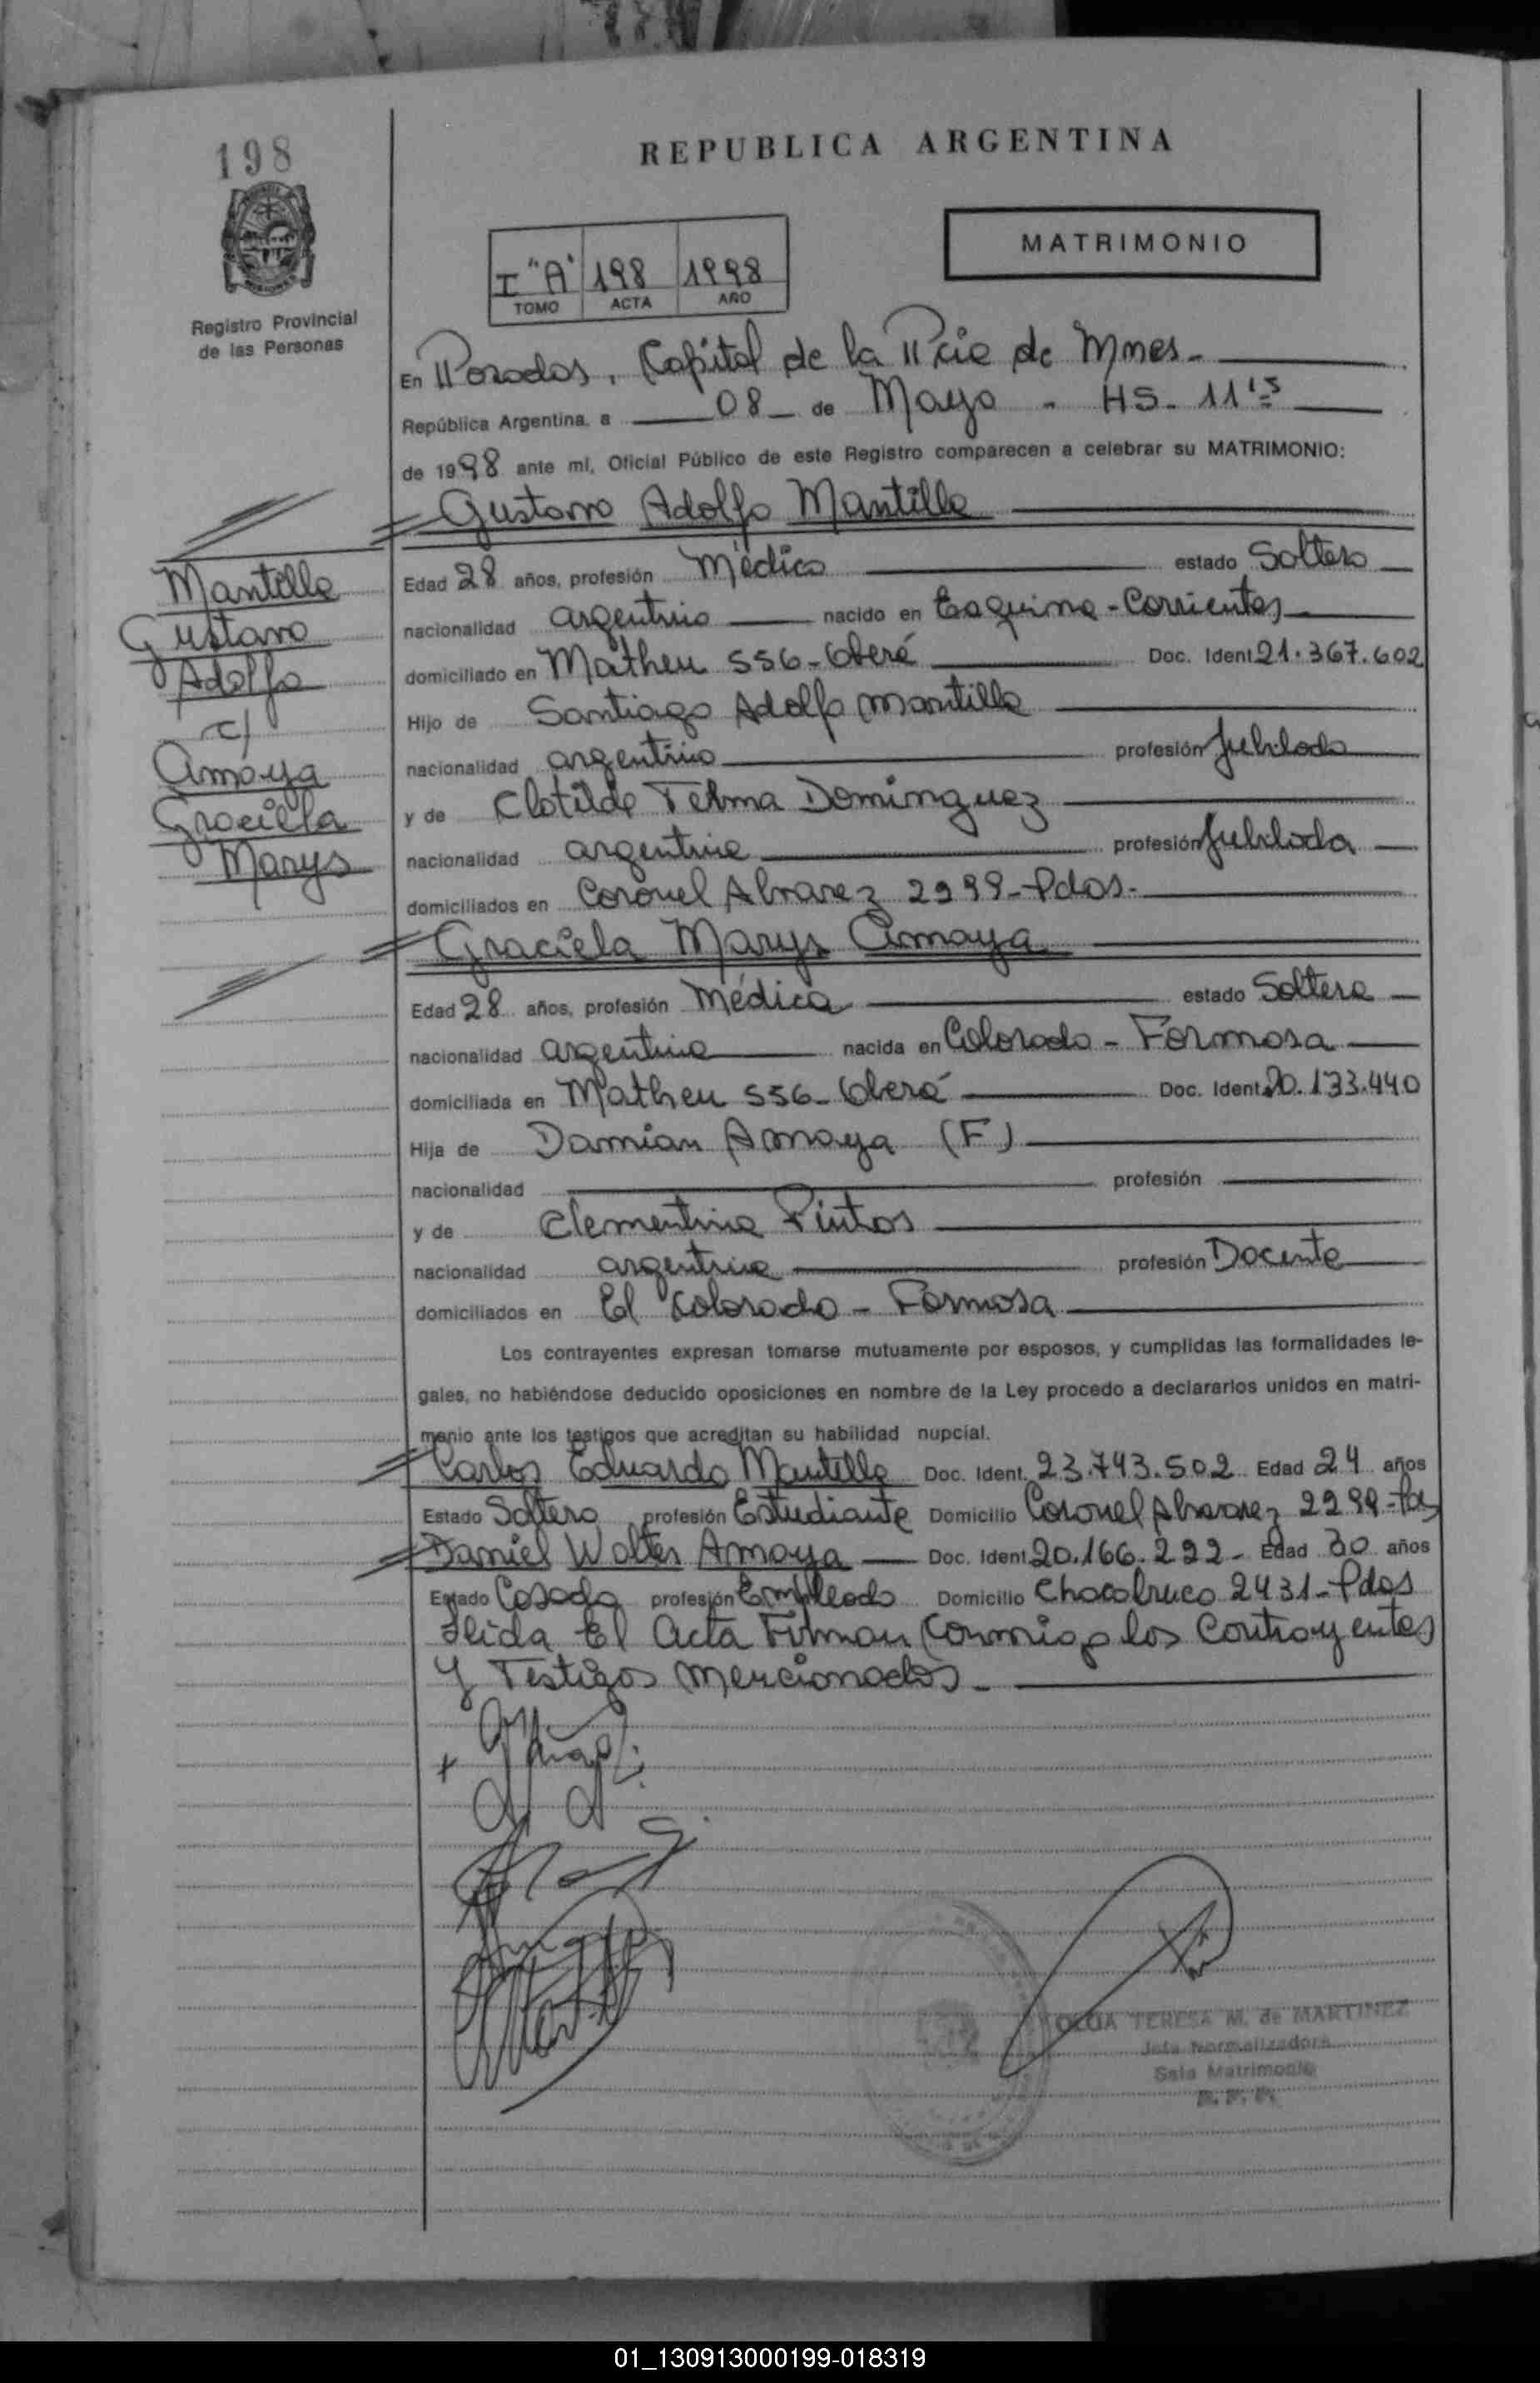 198
REPUBLICA ARGENTINA
MATRIMONIO
I "A" 198 1998
TOMO ACTA AÑO
Registro Provincial
de las Personas
En Posadas, Capital de la Pcia de Mnes-
República Argentina, a 08 de Mayo - HS- 11'15
de 1998 ante mi, Oficial Público de este Registro comparecen a celebrar su MATRIMONIO:
Gustavo Adolfo Mantilla
Mantilla
Gustavo
Adolfo
c/
Amaya
Graciela
Marys
Edad 28 años, profesión Médico estado Soltero
nacionalidad argentino nacido en Esquina - Corrientes
domiciliado en Matheu 556 - Oberá Doc. Ident. 21.367.602
Hijo de Santiago Adolfo Mantilla
nacionalidad argentino profesión Jubilado
y de Clotilde Telma Dominguez
nacionalidad argentina profesión Jubilada
domiciliados en Coronel Alvarez 2299 - Pdas-
Graciela Marys Amaya
Edad 28 años, profesión Médica estado Soltera
nacionalidad argentina nacida en Colorado - Formosa
domiciliada en Matheu 556 - Oberá Doc. Ident. 20.133.440
Hija de Damian Amaya (F)
nacionalidad profesión
y de Clementina Pintos
nacionalidad argentina profesión Docente
domiciliados en El Colorado - Formosa
Los contrayentes expresan tomarse mutuamente por esposos, y cumplidas las formalidades le-
gales, no habiéndose deducido oposiciones en nombre de la Ley procedo a declararlos unidos en matri-
monio ante los testigos que acreditan su habilidad nupcial.
Carlos Eduardo Mantilla Doc. Ident. 23.743.502 Edad 24 años
Estado Soltero profesión Estudiante Domicilio Coronel Alvarez 2299 - Pdas
Daniel Walter Amaya Doc. Ident. 20.166.292 - Edad 30 años
Estado Casado profesión Empleado Domicilio Chacabuco 2431 - Pdas
Leida El Acta Firman Conmigo los Contrayentes
Y Testigos Mencionados -
OLGA TERESA M. de MARTINEZ
Jefa Normalizadora
Sala Matrimonio
R. P. P.
01_130913000199-018319